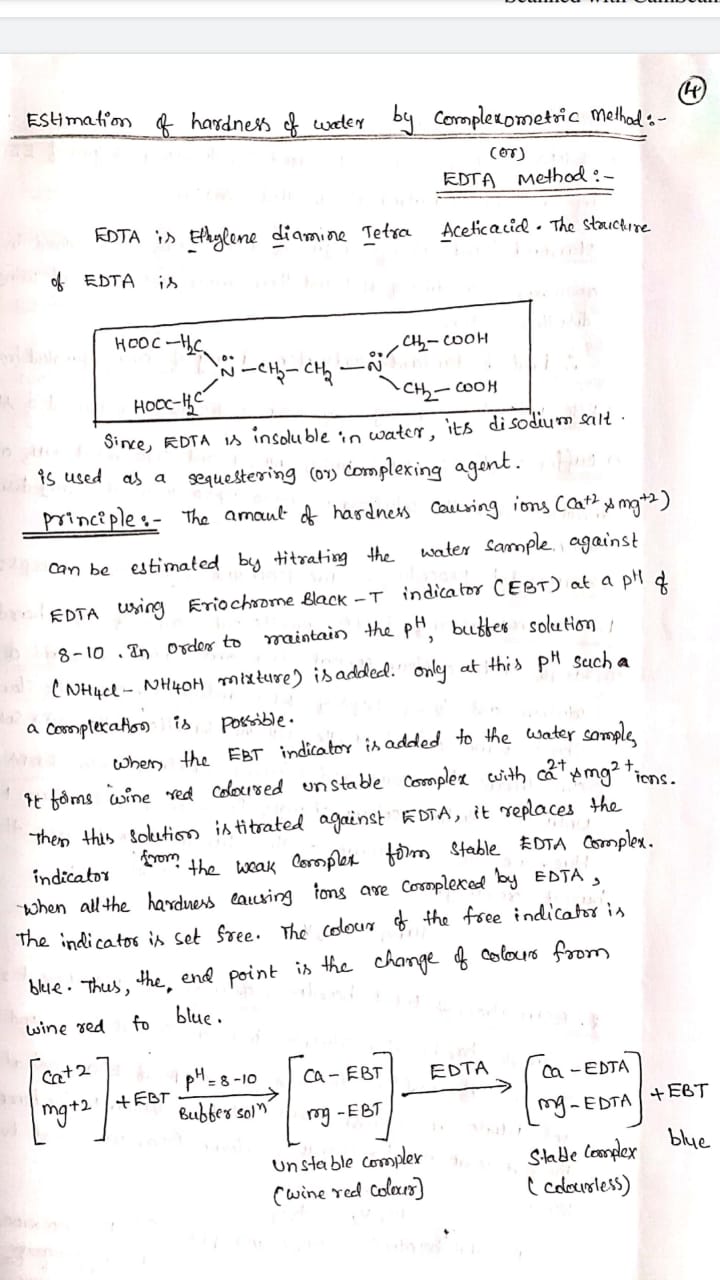 4
Estimation of hardness of water by Complexometric Method:-
(or)
EDTA Method:-
EDTA is Ethylene diamine Tetra Aceticacid. The structure
of EDTA is
HOOC-H2C CH2-COOH
N̈-CH2-CH2-N̈
HOOC-H2C CH2-COOH
Since, EDTA is insoluble in water, its disodium salt.
is used as a sequestering (or) complexing agent.
principle:- The amount of hardness causing ions (Ca+2 & mg+2)
can be estimated by titrating the water sample against
EDTA using Eriochrome Black-T indicator (EBT) at a pH of
8-10. In order to maintain the pH, buffer solution
(NH4cl- NH4OH mixture) is added. only at this pH such a
a complexation is possible.
when the EBT indicator is added to the water sample,
it forms wine red coloured unstable complex with ca2+ & mg2+ ions.
Then this solution is titrated against EDTA, it replaces the
indicator from the weak complex form stable EDTA complex.
when all the hardness causing ions are complexed by EDTA,
The indicator is set free. The colour of the free indicator is
blue. Thus, the, end point is the change of colour from
wine red to blue.
[Ca+2 mg+2] + EBT pH = 8-10 Buffer soln → [CA - EBT mg - EBT] EDTA → [Ca - EDTA mg - EDTA] + EBT
blue
unstable complex Stable Complex
(wine red colour) (colourless)